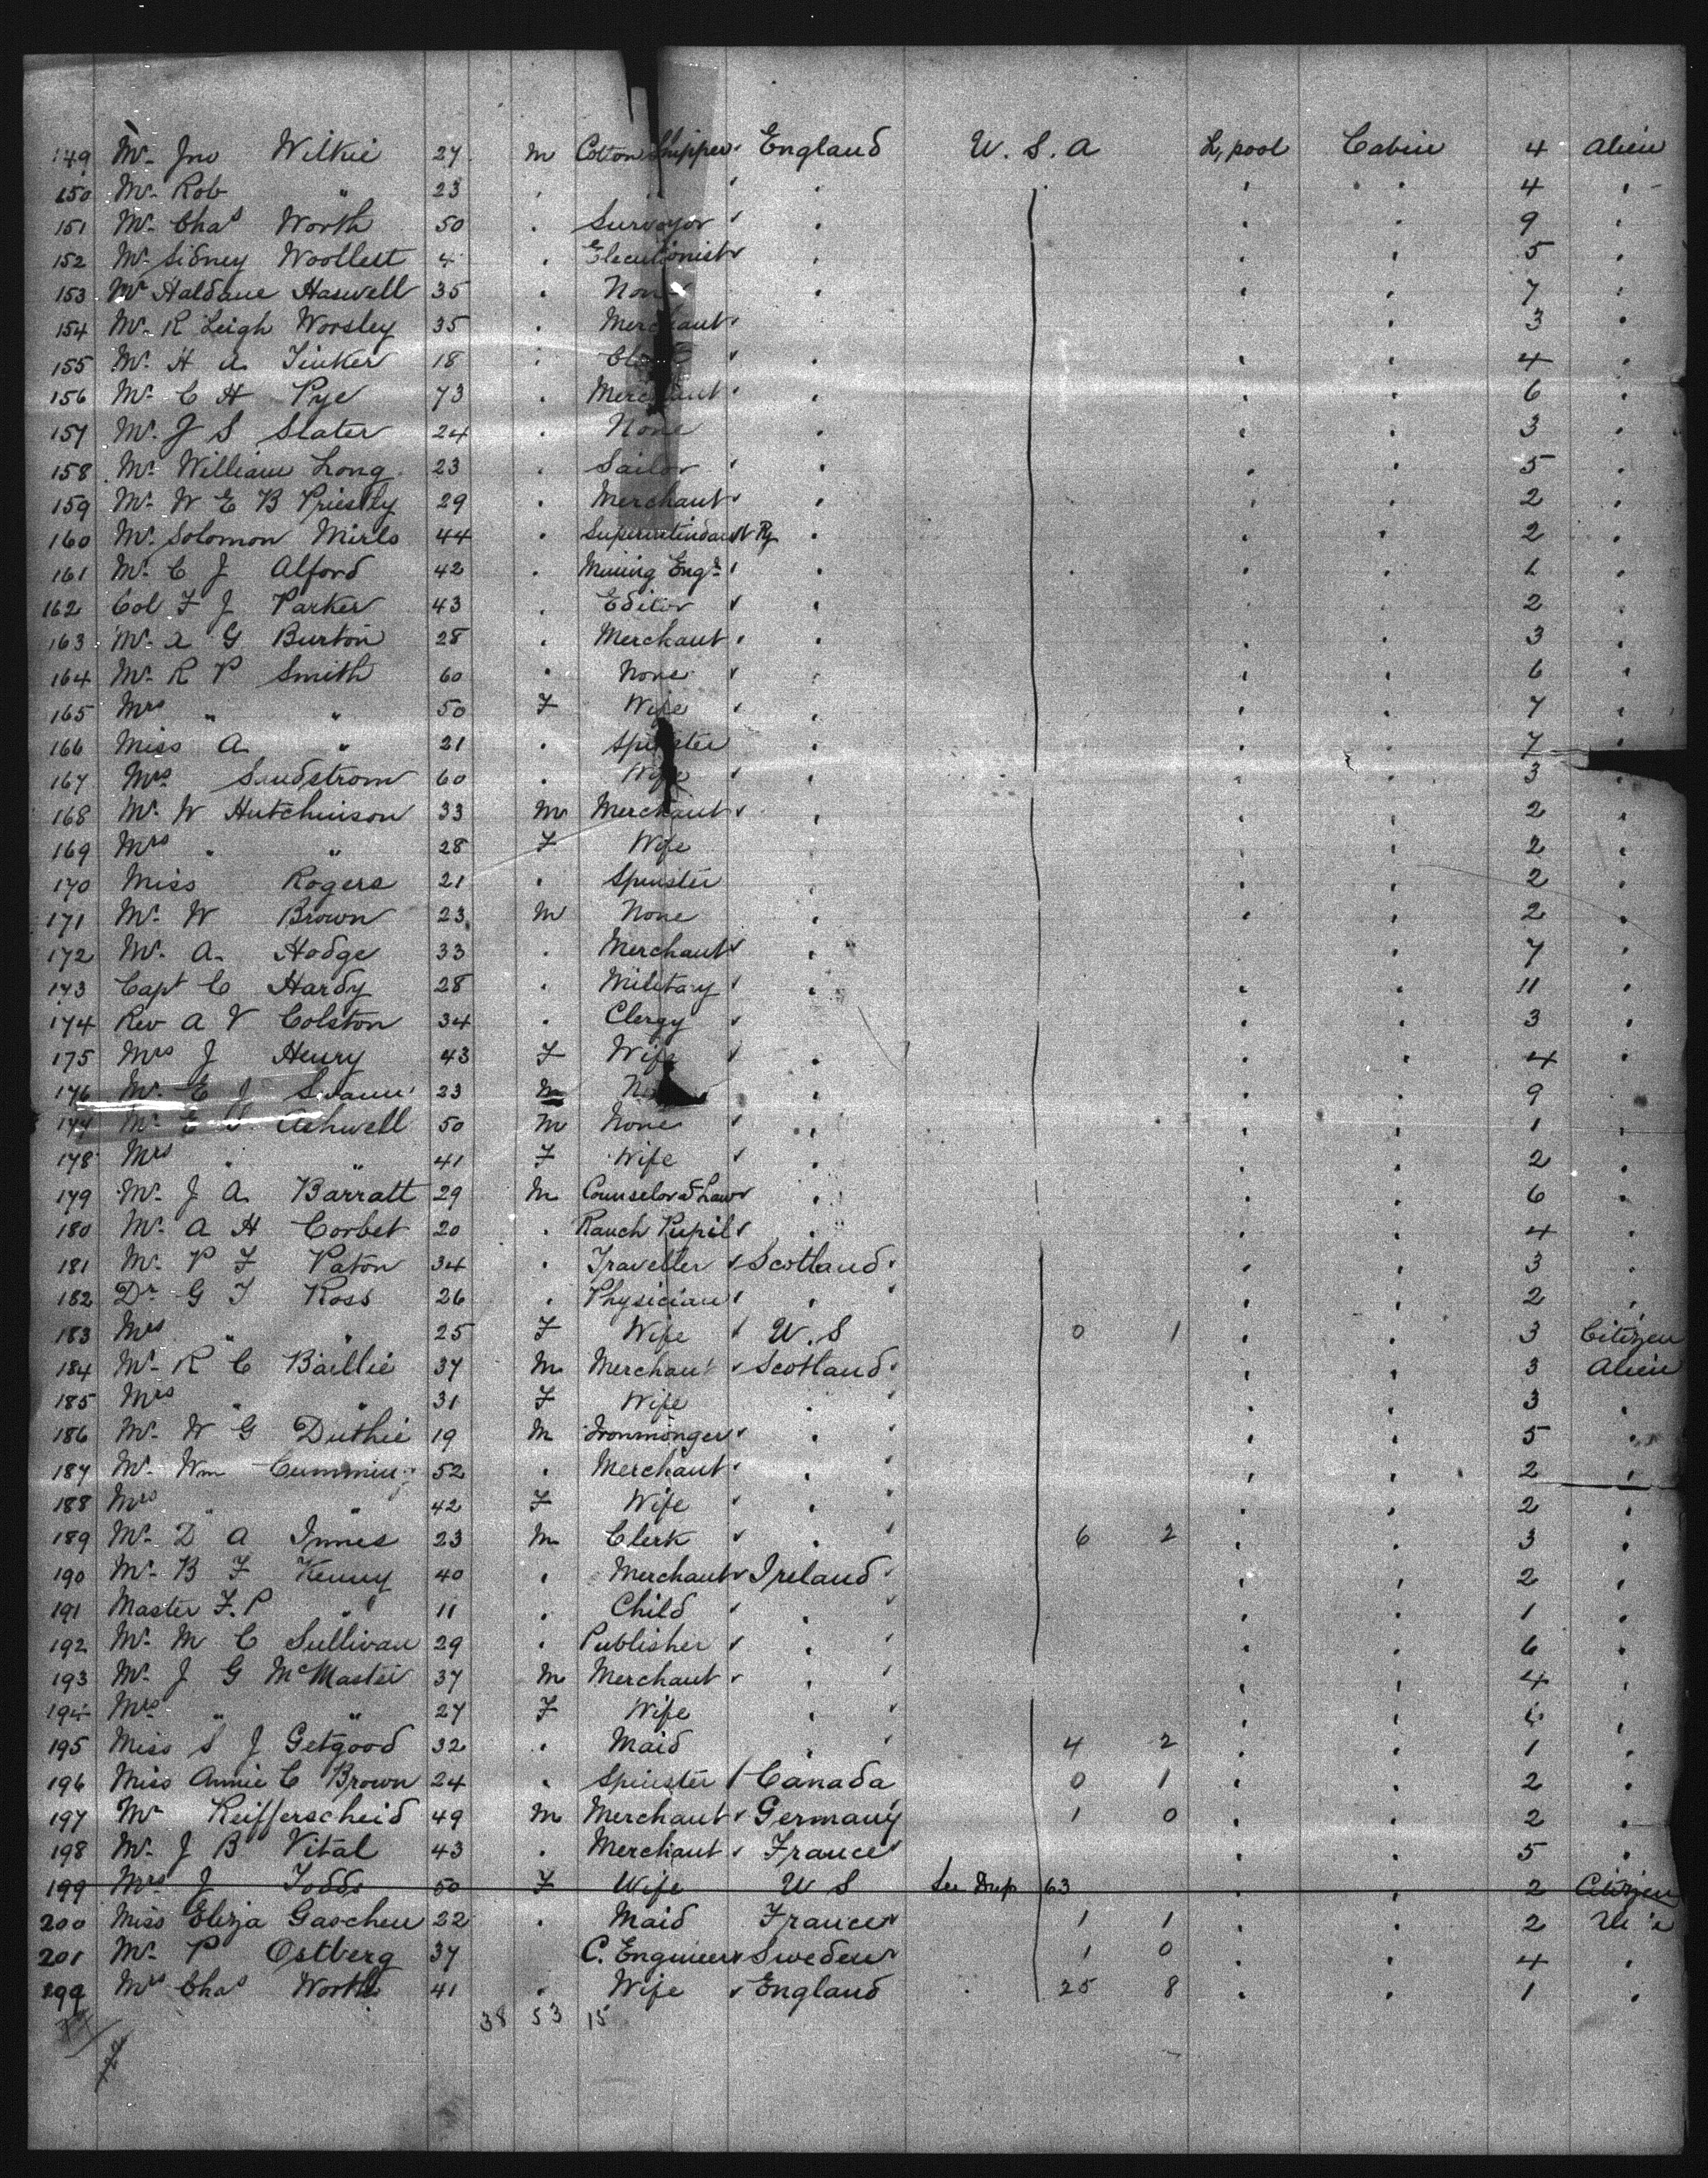 149 Mr. Jno Wilkie 27 m Cotton Shipper England U. S. A L,pool Cabin 4 Alien
150 Mr. Rob " 23 4
151 Mr. Chas Worth 50 Surveyor 9
152 Mr. Sidney Woollest 4 Elecutionist 5
153 Mr Haldane Haswell 35 None 7
154 Mr. R Leigh Worsley 35 Merchant 3
155 Mr. H A Tinker 18 4
156 Mr. C H Pye 73 Merchant 6
157 Mr. J S Slater 24 None 3
158 Mr. William Long 23 Sailor 5
159 Mr. W E B Priestly 29 Merchant 2
160 Mr. Solomon Mirls 44 Superintendant Ry 2
161 Mr. C J Alford 42 Mining Engr 1
162 Col F J Parker 43 Editor 2
163 Mr. A G Burton 28 Merchant 3
164 Mr. R P Smith 60 None 6
165 Mrs " " 50 F Wife 7
166 Miss A " 21 Spinster 7
167 Mrs. Sundstrom 60 Wife 3
168 Mr. W Hutchinson 33 m Merchant 2
169 Mrs " " 28 F Wife 2
170 Miss Rogers 21 Spinster 2
171 Mr. W Brown 23 m None 2
172 Mr. A. Hodge 33 Merchant 7
173 Capt C Hardy 28 Military 11
174 Rev A V Colston 34 Clergy 3
175 Mrs J Henry 43 F Wife 4
176 Mr. E J Swann 23 m No 9
177 Mr. E Ashwell 50 m None 1
178 Mrs " " 41 F Wife 2
179 Mr. J A Barratt 29 m Counselor at Law 6
180 Mr. A H Corbet 20 Ranch Pupil 4
181 Mr. P F Paton 34 Traveller Scotland 3
182 Dr G T Ross 26 Physician 2
183 Mrs " " 25 F Wife U. S 0 1 3 Citizen
184 Mr. R C Baillie 37 m Merchant Scotland 3 Alien
185 Mrs " " 31 F Wife 3
186 Mr. W G Duthie 19 m Ironmonger 5
187 Mr. Wm Cumming 52 Merchant 2
188 Mrs " " 42 F Wife 2
189 Mr. D A Innes 23 m Clerk 6 2 3
190 Mr. B F Kenny 40 Merchant Ireland 2
191 Master F. P " 11 Child 1
192 Mr. M C Sullivan 29 Publisher 6
193 Mr. J G McMaster 37 m Merchant 4
194 Mrs " " 27 F Wife
195 Miss S J Getgood 32 Maid 4 2 1
196 Miss Annie C Brown 24 Spinster Canada 0 1 2
197 Mr Reifferscheid 49 m Merchant Germany 1 0 2
198 Mr. J B Vital 43 Merchant France 5
199 Mrs J Todds 50 F Wife U S See Dup 63 2 Citizen
200 Miss Eliza Gaschen 22 Maid France 1 1 2
201 Mr. P Ostberg 37 C. Engineer Sweden 1 0 4
199 Mrs Chas Worth 41 Wife England 25 8 1
38 53 15